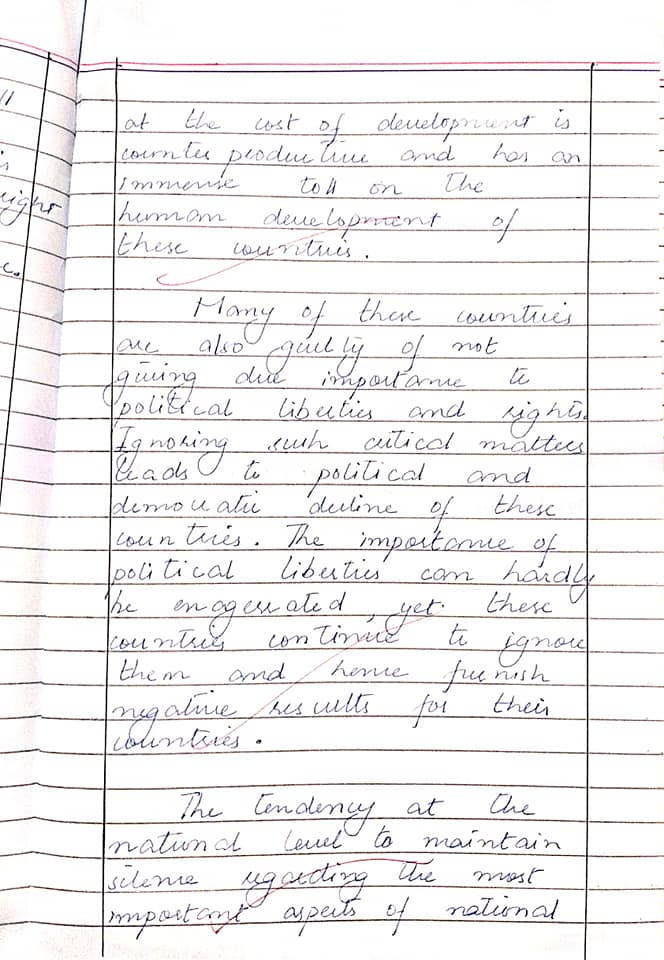 11
is
right
e.
at the cost of development is
counter productive and has an
immense toll on the
human development of
these countries.
Many of these countries
are also guilty of not
giving due importance to
political liberties and rights.
Ignoring such critical matters
leads to political and
democratic decline of these
countries. The importance of
political liberties can hardly
be exaggerated, yet these
countries continue to ignore
them and hence furnish
negative results for their
countries.
The tendency at the
national level to maintain
silence regarding the most
important aspects of national